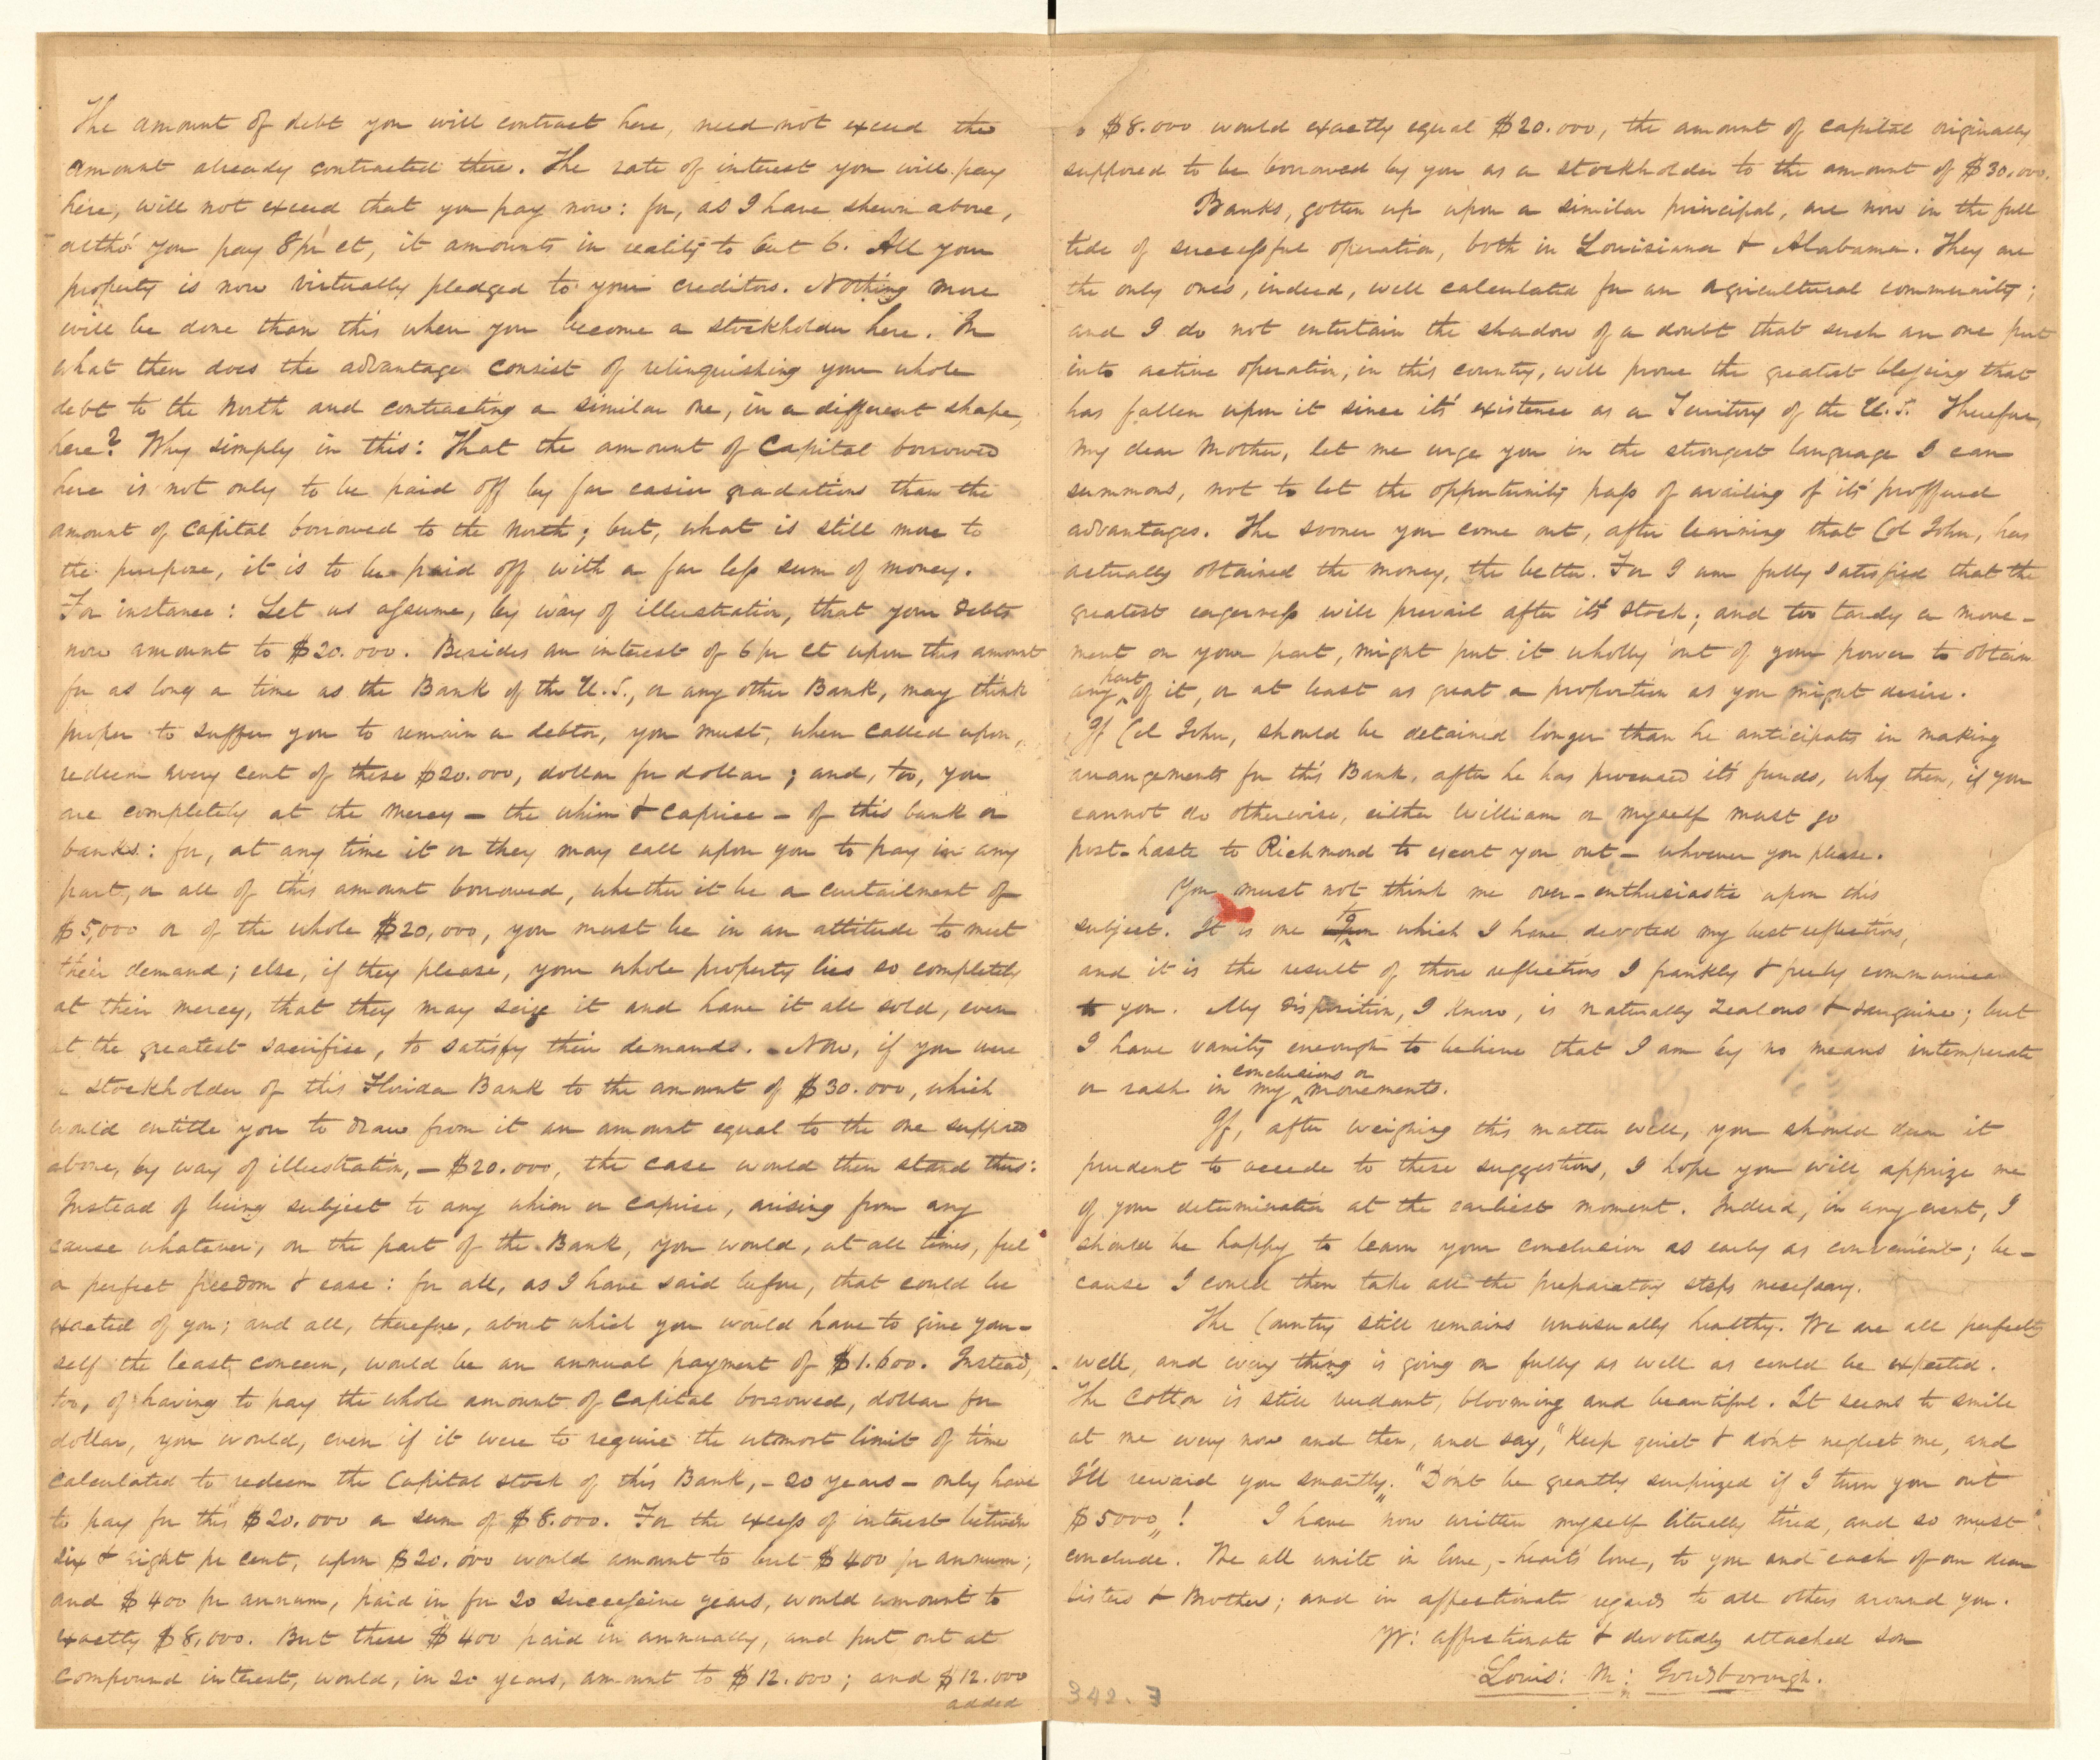 The amount of debt you will contract here, need not exceed the
amount already contracted there. The rate of interest you will pay
here, will not exceed that you pay now: for, as I have shewn above,
altho' you pay 8 pr ct, it amounts in reality to but 6. All your
property is now virtually pledged to your creditors. Nothing more
will be done than this when you become a stockholder here. In
what then does the advantage consist of relinquishing your whole
debt to the North and contracting a similar one, in a different shape,
here? Why simply in this: That the amount of Capital borrowed
here is not only to be paid off by far easier gradations than the
amount of Capital borrowed to the North; but, what is still more to
the purpose, it is to be paid off with a far less sum of money.
For instance: Let us assume, by way of illustration, that your debts
now amount to $20.000. Besides an interest of 6 pr ct upon this amount
for as long a time as the Bank of the U.S., or any other Bank, may think
proper to suffer you to remain a debtor, you must, when called upon,
redeem every cent of these $20.000, dollar for dollar; and, too, you
are completely at the mercy - the whim & caprice - of this bank or
banks: for, at any time it or they may call upon you to pay in any
part, or all of this amount borrowed, whether it be a curtailment of
$5,000 or of the whole $20,000, you must be in an attitude to meet
their demand; else, if they please, your whole property lies so completely
at their mercy, that they may seize it and have it all sold, even
at the greatest sacrifise, to satisfy their demands. - Now, if you were
a stockholder of this Florida Bank to the amount of $30.000, which
would entitle you to draw from it an amount equal to the one supposed
above, by way of illustration, - $20.000, the case would then stand thus:
Instead of being subject to any whim or caprise, arising from any
cause whatever, on the part of the Bank, you would, at all times, feel
a perfect freedom & ease: for all, as I have said before, that could be
exacted of you; and all, therefore, about which you would have to give your-
self the least concern, would be an annual payment of $1.600. Instead,
too, of having to pay the whole amount of Capital borrowed, dollar for
dollar, you would, even if it were to require the utmost limit of time
calculated to redeem the Capital stock of this Bank, - 20 years - only have
to pay for this $20.000 a sum of $8.000. For the excess of interest between
six & eight pr cent, upon $20.000 would amount to but $400 pr annum;
and $400 pr annum, paid in for 20 successive years, would amount to
exactly $8,000. But these $400 paid in annually, and put out at
compound interest, would, in 20 years, amount to $12.000; and $12.000
added
$8.000 would exactly equal $20.000, the amount of capital originally
supposed to be borrowed by you as a stockholder to the amount of $30.000.
Banks, gotten up upon a similar principal, are now in the full
tide of successful operation, both in Louisiana & Alabama. They are
the only ones, indeed, well calculated for an agricultural community;
and I do not entertain the shadow of a doubt that such an one put
into active operation, in this country, will prove the greatest blessing that
has fallen upon it since its' existence as a Territory of the U.S. Therefore,
my dear Mother, let me urge you in the strongest language I can
summons, not to let the opportunity pass of availing of its' proffered
advantages. The sooner you come out, after learning that Col John, has
actually obtained the money, the better. For I am fully satisfied that the
greatest eagerness will prevail after its' stock; and too tardy a move-
ment on your part, might put it wholly out of your power to obtain
any part of it, or at least as great a proportion as you might desire.
If Col John, should be detained longer than he anticipates in making
arrangements for this Bank, after he has procured its' funds, why then, if you
cannot do otherwise, either William or myself must go
post-haste to Richmond to escort you out - whoever you please.
You must not think me over-enthusiastic upon this
subject. It is one to which I have devoted my best reflections,
and it is the result of those reflections I frankly & freely communicate
to you. My disposition, I know, is naturally zealous & sanguine; but
I have vanity enough to believe that I am by no means intemperate
or rash in my conclusions or movements.
If, after weighing this matter well, you should deem it
prudent to accede to these suggestions, I hope you will apprize me
of your determination at the earliest moment. Indeed, in any event, I
should be happy to learn your conclusion as early as convenient; be-
cause I could then take all the preparatory steps necessary.
The Country still remains unusually healthy. We are all perfectly
well, and every thing is going on fully as well as could be expected.
The cotton is still verdant, blooming and beautiful. It seems to smile
at me every now and then, and say, "Keep quiet & don't neglect me, and
I'll reward you smartly. "Don't be greatly surprized if I turn you out
$5000"! I have now written myself literally tired, and so must
conclude. We all unite in love, - heart's love, to you and each of our dear
Sisters & Brothers; and in affectionate regards to all others around you.
Yr: affectionate & devotedly attached son
Louis: M: Goldsborough.
342.3